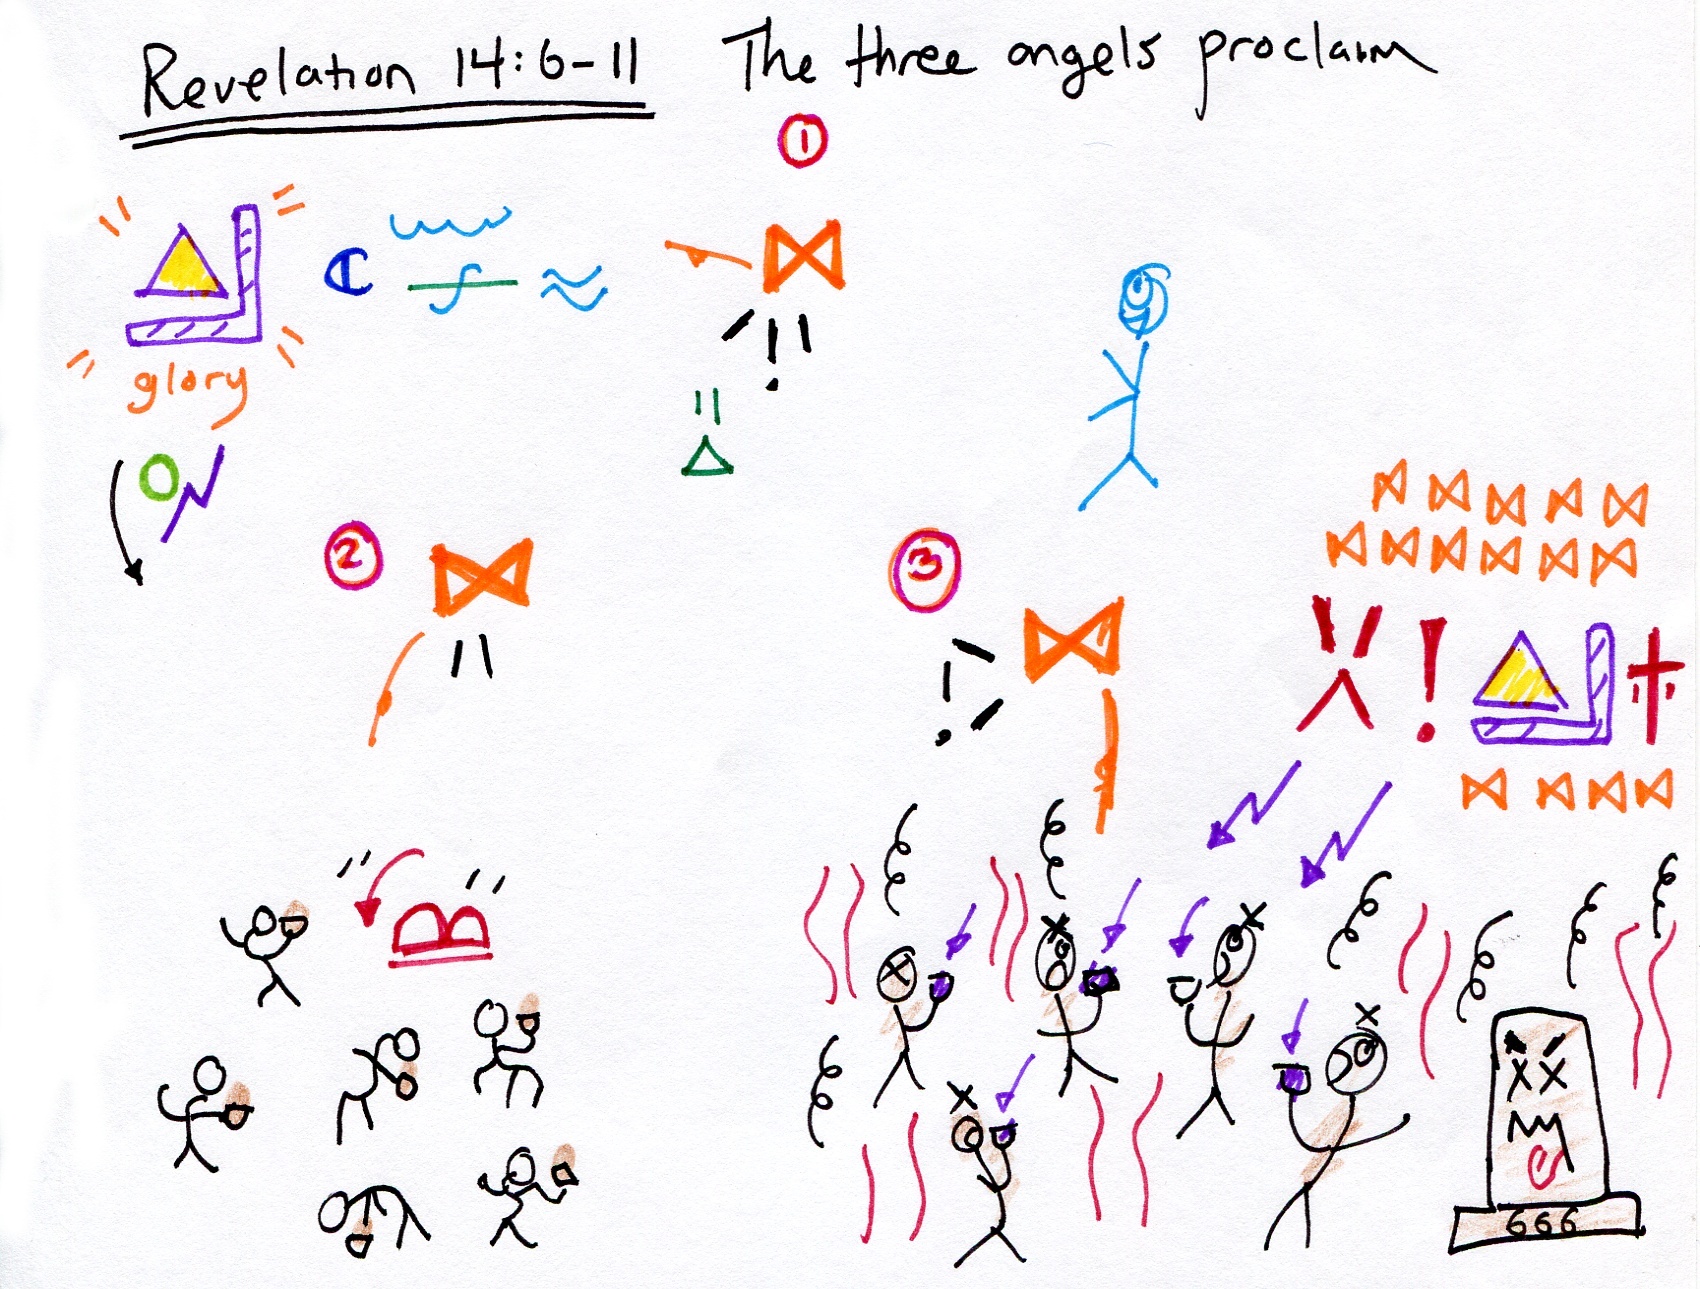 Revelation 14:6-11 The three angels proclaim
1
glory
2
3
666